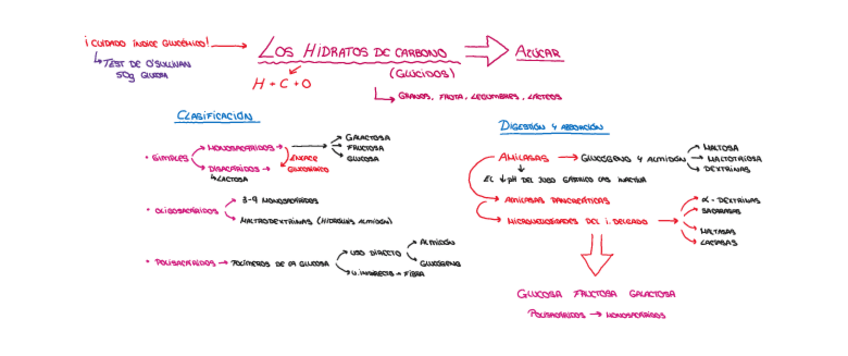 ¡ CUIDADO ÍNDICE GLUCÉMICO! → LOS HIDRATOS DE CARBONO ⇒ AZÚCAR
↳ TEST DE O'SULLIVAN
50g GLUCOSA
(GLÚCIDOS)
H + C + O
↳ GRANOS, FRUTA, LEGUMBRES, LÁCTEOS
CLASIFICACIÓN
• SIMPLES
MONOSACÁRIDOS →
GALACTOSA
FRUCTOSA
GLUCOSA
ENLACE
GLUCOSÍDICO
DISACÁRIDOS →
↳ LACTOSA
• OLIGOSACÁRIDOS
3-9 MONOSACÁRIDOS
MALTRODEXTRINAS (HIDRÓLISIS ALMIDÓN)
• POLISACÁRIDOS → POLÍMEROS DE LA GLUCOSA
USO DIRECTO
ALMIDÓN
GLUCÓGENO
U. INDIRECTO → FIBRA
DIGESTIÓN Y ABSORCIÓN
AMILASAS → GLUCÓGENO Y ALMIDÓN
MALTOSA
MALTOTRIOSA
DEXTRINAS
EL ↓ PH DEL JUGO GÁSTRICO LAS INACTIVA
AMILASAS PANCREÁTICAS
MICROVELLOSIDADES DEL I. DELGADO →
α - DEXTRINAS
SACARASAS
MALTASAS
LACTASAS
GLUCOSA FRUCTOSA GALACTOSA
POLISACÁRIDOS → MONOSACÁRIDOS